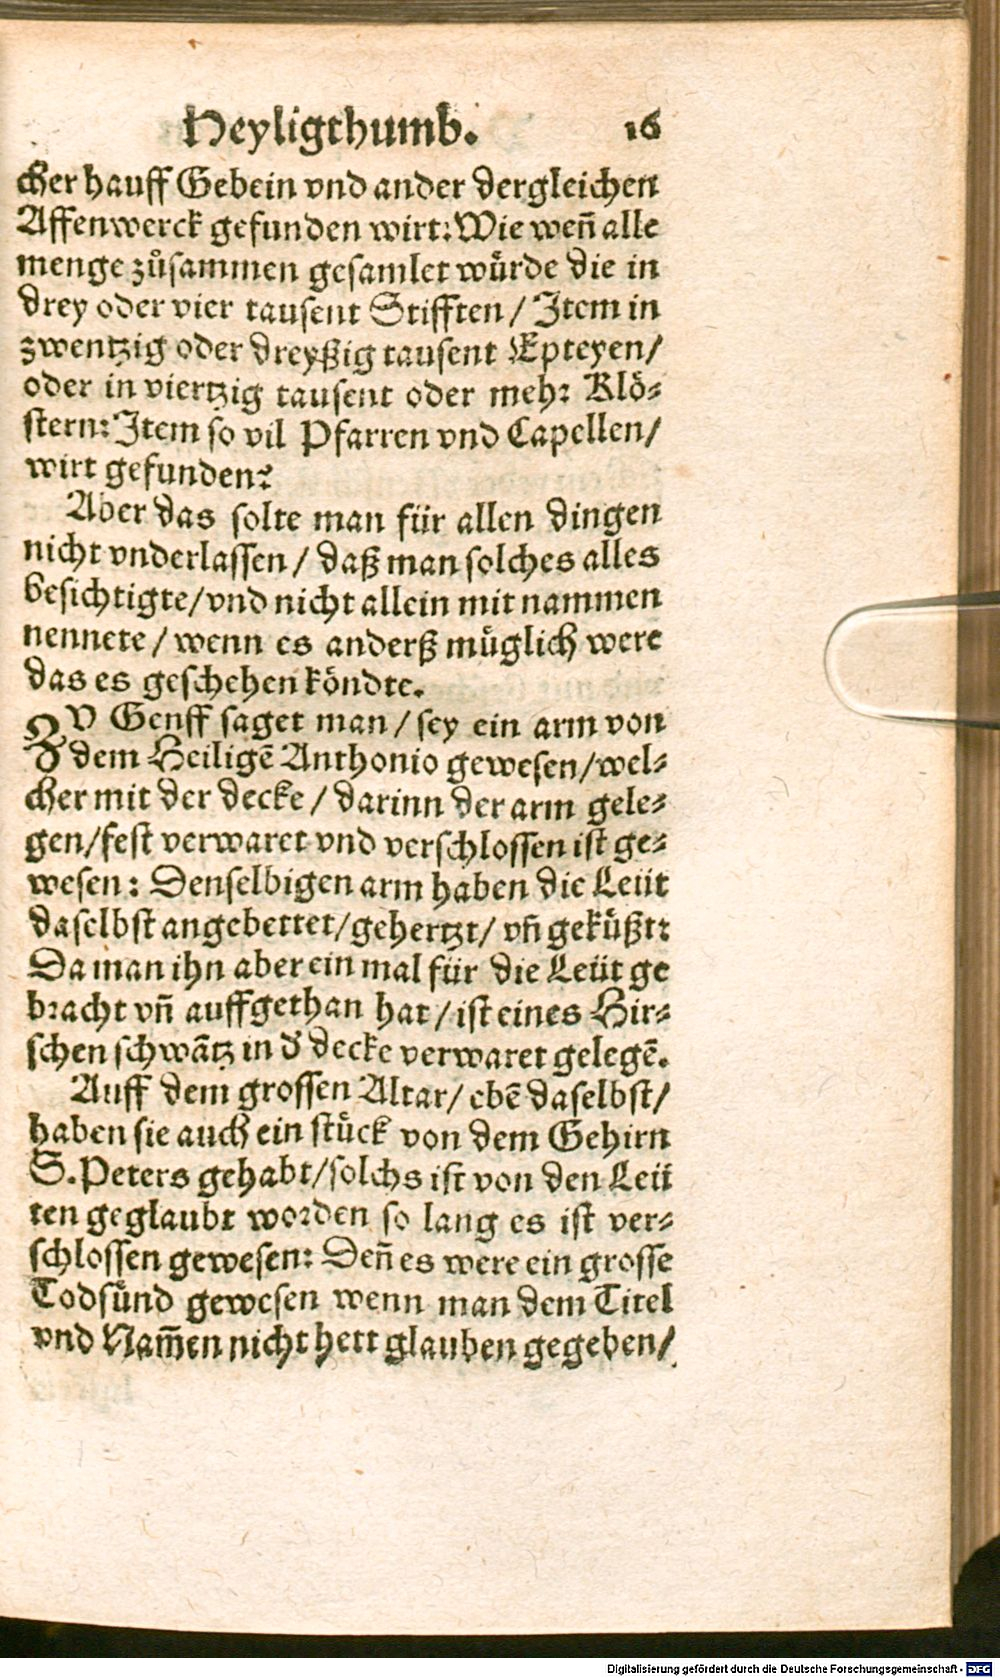 Heyligthumb. 16
cher hauff Gebein vnd ander dergleichen
Affenwerck gefunden wirt: Wie weñ alle
menge zůsammen gesamlet würde die in
drey oder vier tausent Stifften / Item in
zwentzig oder dreyßig tausent Epteyen/
oder in viertzig tausent oder mehr Klö⸗
stern: Item so vil Pfarren vnd Capellen/
wirt gefunden?
Aber das solte man für allen dingen
nicht vnderlassen / daß man solches alles
besichtigte/vnd nicht allein mit nammen
nennete / wenn es anderß müglich were
das es geschehen köndte.
ZV Genff saget man / sey ein arm von
dem Heiligē Anthonio gewesen/wel⸗
cher mit der decke / darinn der arm gele⸗
gen/fest verwaret vnd verschlossen ist ge⸗
wesen: Denselbigen arm haben die Leüt
daselbst angebettet/gehertzt/ vñ geküßt:
Da man ihn aber ein mal für die Leüt ge
bracht vñ auffgethan hat / ist eines Hir⸗
schen schwātz in d' decke verwaret gelegē.
Auff dem grossen Altar/ ebē daselbst/
haben sie auch ein stück von dem Gehirn
S. Peters gehabt/solchs ist von den Leü
ten geglaubt worden so lang es ist ver⸗
schlossen gewesen: Deñ es were ein grosse
Todsünd gewesen wenn man dem Titel
vnd Nam̄en nicht hett glauben gegeben/
Digitalisierung gefördert durch die Deutsche Forschungsgemeinschaft - DFG